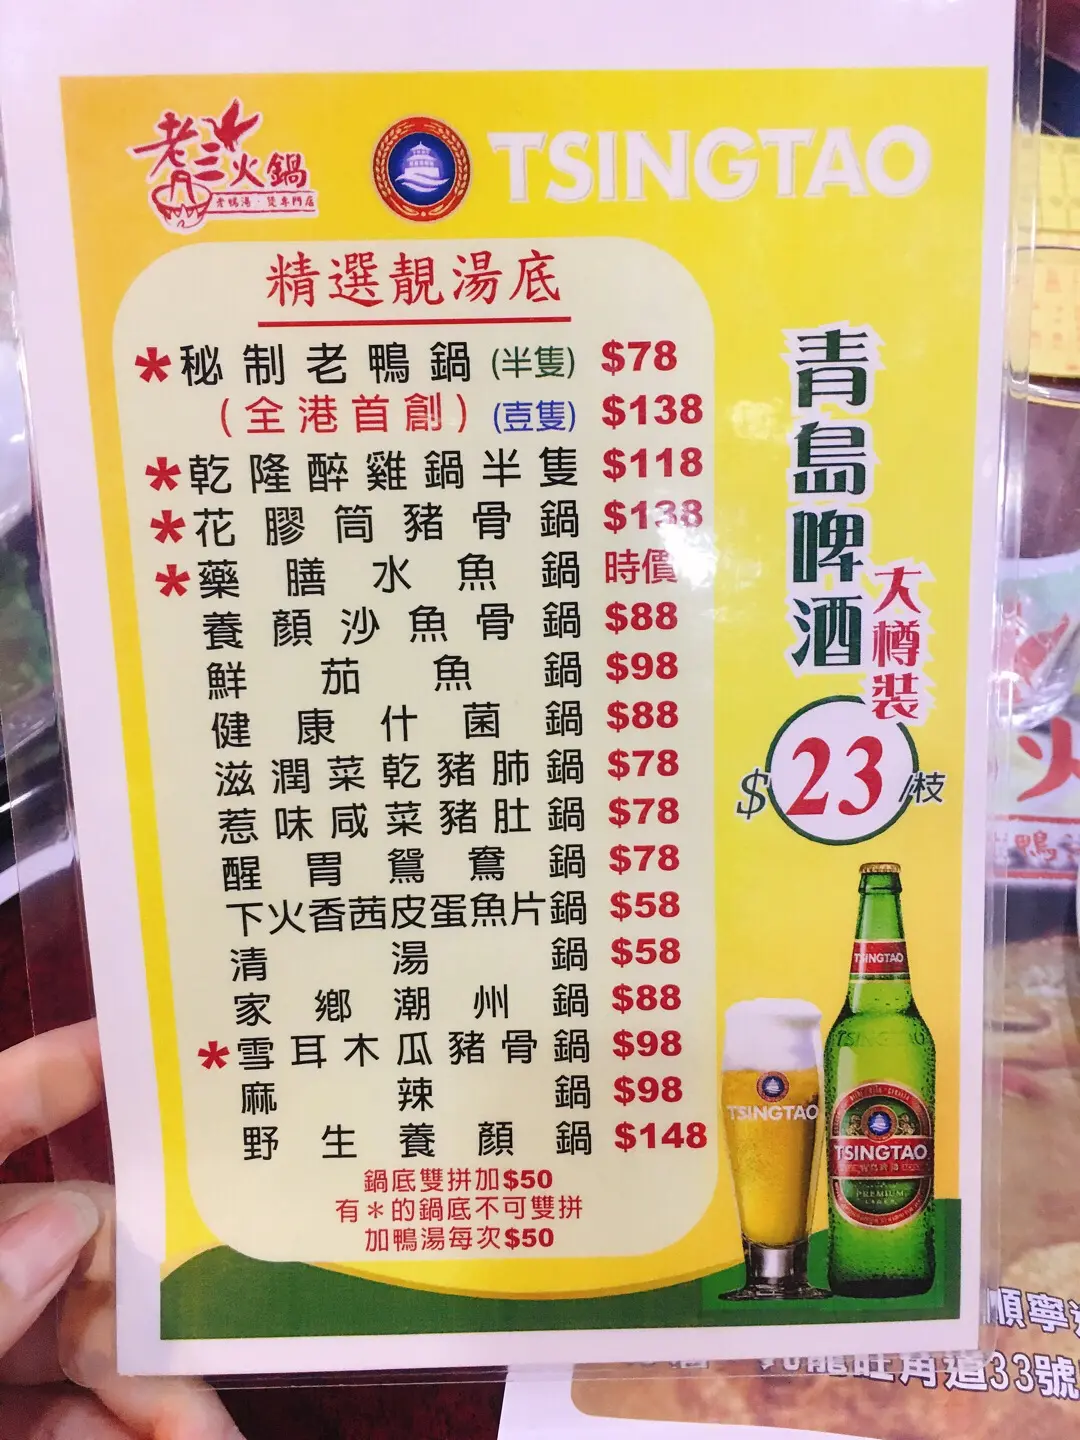 老三火鍋
老鴨湯·煲專門店
TSINGTAO
精選靚湯底
*秘制老鴨鍋 (半隻) $78
(全港首創) (壹隻) $138
*乾隆醉雞鍋半隻 $118
*花膠筒豬骨鍋 $138
*藥膳水魚鍋 時價
養顏沙魚骨鍋 $88
鮮茄魚鍋 $98
健康什菌鍋 $88
滋潤菜乾豬肺鍋 $78
惹味咸菜豬肚鍋 $78
醒胃鴛鴦鍋 $78
下火香茜皮蛋魚片鍋 $58
清湯鍋 $58
家鄉潮州鍋 $88
*雪耳木瓜豬骨鍋 $98
麻辣鍋 $98
野生養顏鍋 $148
鍋底雙拼加$50
有*的鍋底不可雙拼
加鴨湯每次$50
青島啤酒
大樽裝
$23/枝
TSINGTAO
TSINGTAO
TSINGTAO
TSINGTAO
PREMIUM
LAGER
火
鴨
順寧道
九龍旺角道33號